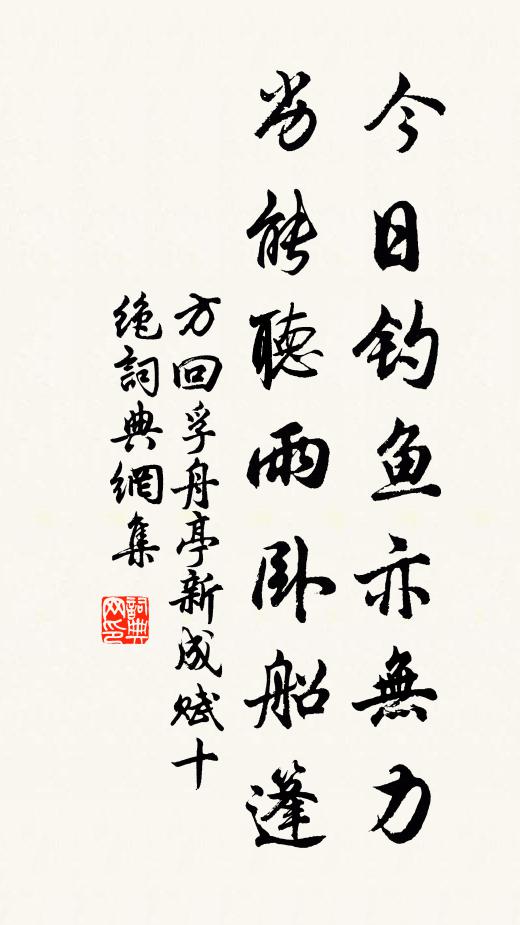 今日钓鱼亦無力
劣能聽雨卧船篷
方回孚舟亭新成赋十
绝詞典網集
詞典
网印